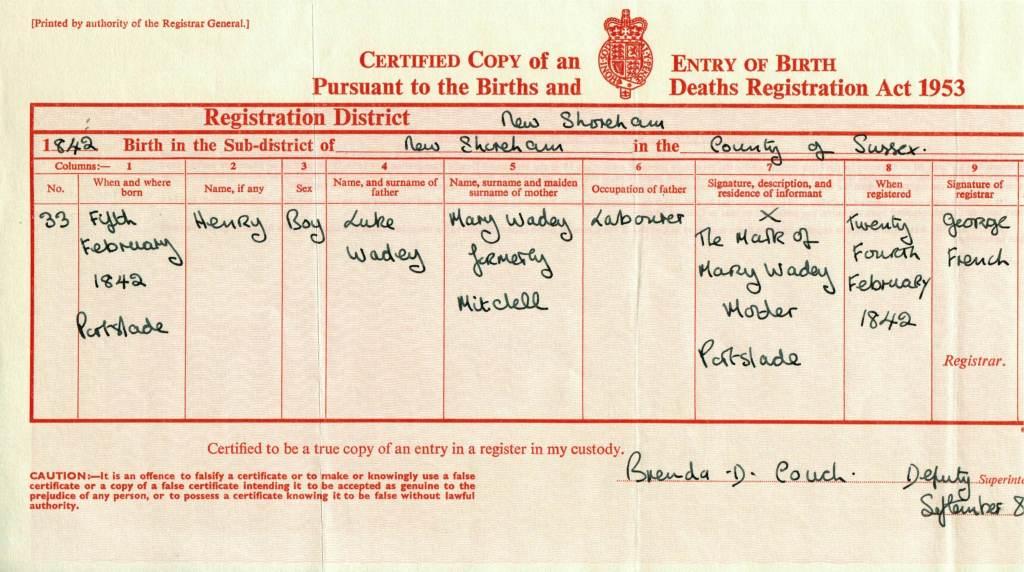 [Printed by authority of the Registrar General.]
CERTIFIED COPY of an ENTRY OF BIRTH
Pursuant to the Births and Deaths Registration Act 1953
Registration District New Shoreham
1842 Birth in the Sub-district of New Shoreham in the County of Sussex.
Columns:— 1 2 3 4 5 6 7 8 9
No. When and where born Name, if any Sex Name, and surname of father Name, surname and maiden surname of mother Occupation of father Signature, description, and residence of informant When registered Signature of registrar
33 Fifth Henry Boy Luke Mary Wadey Labourer X Twenty George
February Wadey formerly The Mark of Fourth French
1842 Mitchell Mary Wadey February
Portslade Mother 1842
Portslade Registrar.
Certified to be a true copy of an entry in a register in my custody.
CAUTION:—It is an offence to falsify a certificate or to make or knowingly use a false
certificate or a copy of a false certificate intending it to be accepted as genuine to the
prejudice of any person, or to possess a certificate knowing it to be false without lawful
authority.
Brenda D. Couch. Deputy Superinte
September 8